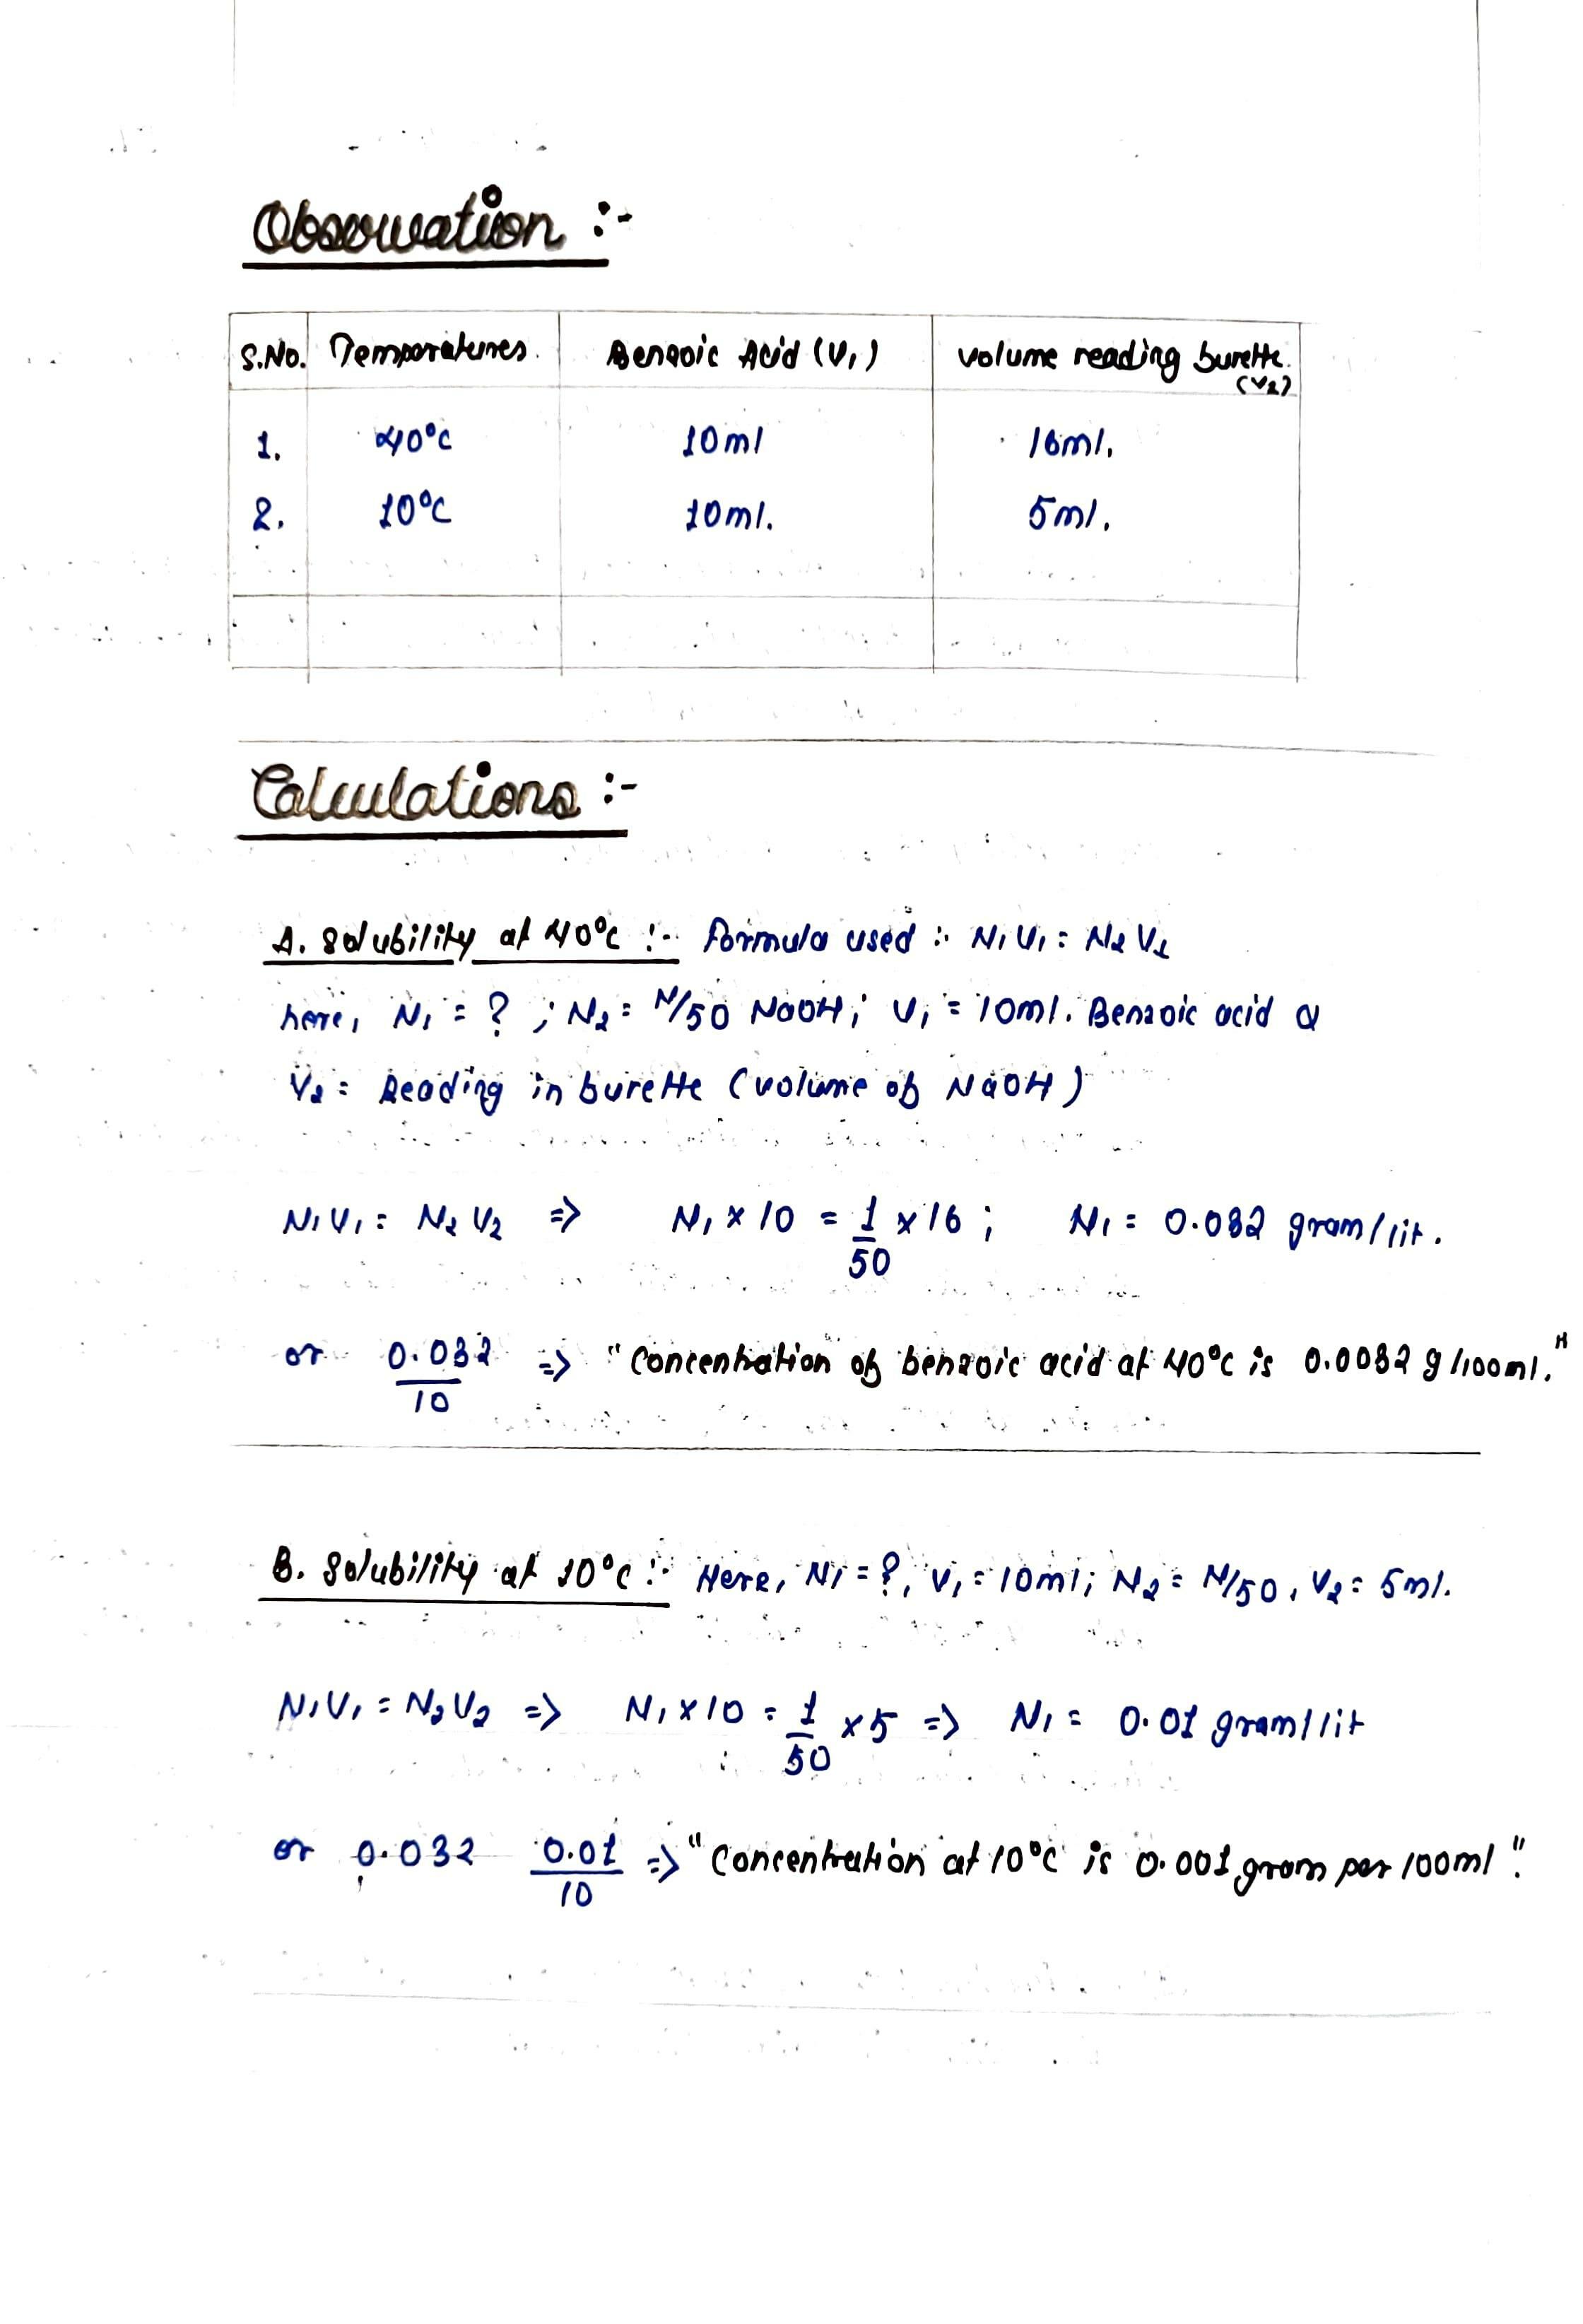 Observation :-
S.No. Temperatures. Benzoic Acid (V₁) volume reading burette. (V₂)
1. 40°C 10ml 16ml.
2. 10°C 10ml. 5ml.
Calculations :-
A. Solubility at 40°C :- Formula used :- N₁V₁ = N₂V₂
here, N₁ = ? ; N₂ = N/50 NaOH; V₁ = 10ml. Benzoic acid &
V₂ = Reading in burette (volume of NaOH)
N₁V₁ = N₂V₂ => N₁ × 10 = 1/50 × 16 ; N₁ = 0.032 gram/lit.
or 0.032/10 => "Concentration of benzoic acid at 40°C is 0.0032 g/100ml."
B. Solubility at 10°C :- Here, N₁ = ?, V₁ = 10ml; N₂ = N/50, V₂ = 5ml.
N₁V₁ = N₂V₂ => N₁ × 10 = 1/50 × 5 => N₁ = 0.01 gram/lit
or 0.032 0.01/10 => "Concentration at 10°C is 0.001 gram per 100ml".